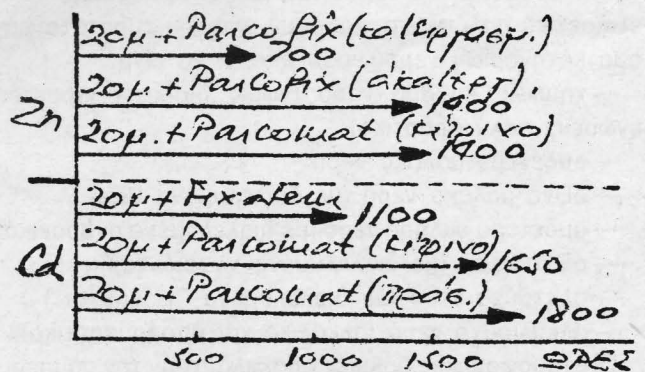 Zn
20μ + Parcofix (κατεργασμ.)
700
20μ + Parcofix (ακατεργ).
1400
20μ. + Parcomat (κίτρινο)
1400
Cd
20μ + Fixateur
1100
20μ + Parcomat (κιτρινο)
1650
20μ + Parcomat (πράσ.)
1800
500 1000 1500 ΩΡΕΣ